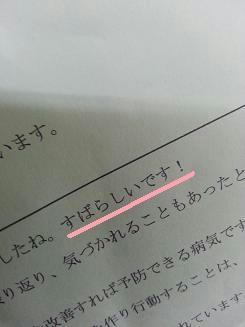 います。
したね。すばらしいです！
り返り、気づかれることもあったと
改善すれば予防できる病気です
作り行動することは、
れています